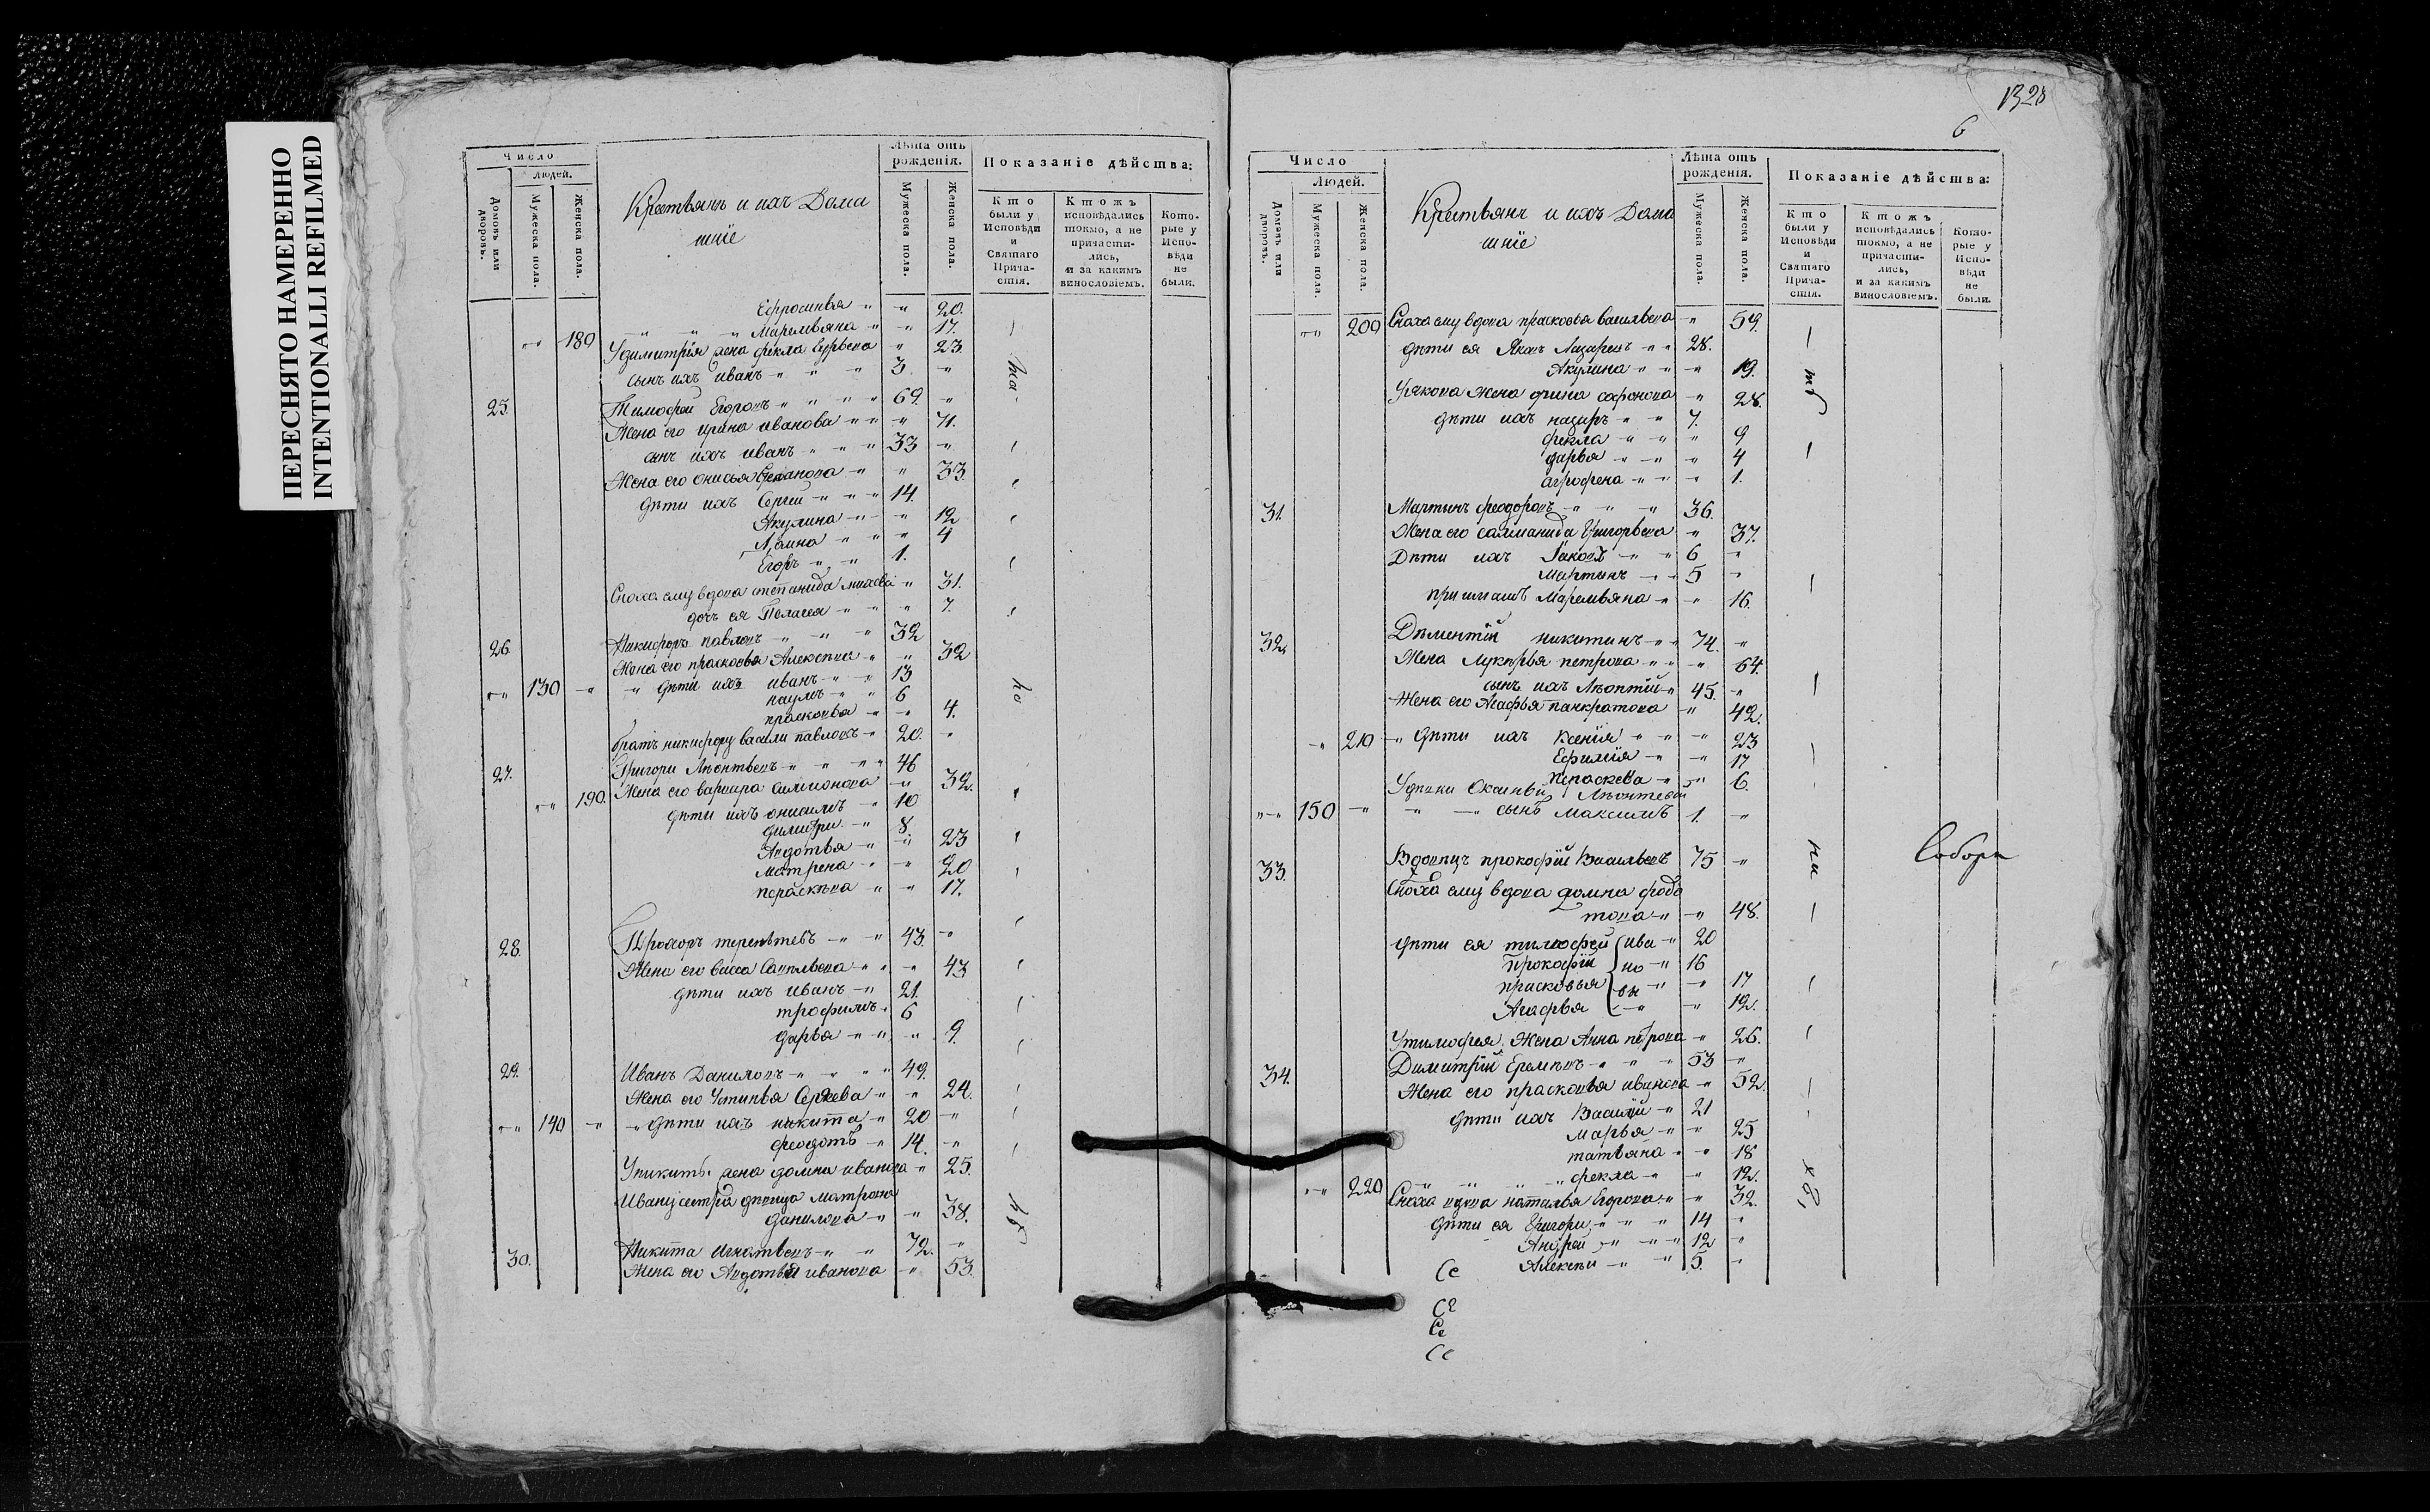 ПЕРЕСНЯТО НАМЕРЕННО
INTENTIONALLI REFILMED
Число
людей.
Домовъ или дворовъ.
Мужеска пола.
Женска пола.
Крестьянъ и ихъ Дома
шніе
Лѣта отъ рожденія.
Мужеска пола.
Женска пола.
Показаніе дѣйства:
Кто были у Исповѣди и Святаго Прича-стія.
Ктожъ исповѣдались токмо, а не причасти-лись, и за какимъ винословіемъ.
Кото-рые у Испо-вѣди не были.
Ефросинья " " 20.
" " " Маремьяна " " 17.
" 180 Удимитрія жена фекла Гурьева " 23.
сынъ ихъ иванъ " " " 3 "
25. Тимофей Егоровъ " " " " 69. "
Жена его ирина иванова " " " 71.
сынъ ихъ иванъ " " " 33 "
Жена его онисья Степанова " " 33.
дѣти ихъ Сергій " " " 14.
Акулина " " " 12
Домна " " " 4
Егоръ " " 1.
Сноха ему вдова степанида " 31.
дочь ея Пелагея " " " 7.
26. Никифоръ павловъ " " " 32
Жена его прасковья Алексѣева " " 32
" 130 " " дѣти ихъ иванъ " " 13
наумъ " " 6
прасковья " " 4.
братъ никифору васили павловъ " 20. "
27. Григори Леонтьевъ " " " " 46
" 190. Жена его варвара симионова " 32.
дѣти ихъ онисимъ " 10
димитри " 8.
Авдотья " " 23
матрена " " 20
параскѣва " " 17.
28. Прохоръ терентьевъ " " 43. "
Жена его васса Савельева " " " 43
дѣти ихъ иванъ " 21.
трофимъ " 6
дарья " " " 9.
29. Иванъ Даниловъ " " " " 49.
Жена его Устинья Сергева " " 24.
" 140 " " дѣти ихъ никита " 20 "
феодотъ " 14. "
Уникиты жена домна иванова " 25.
Ивану сестра дѣвица Матрона
данилова " " 38.
30. Никита игнатьевъ " " 72. "
Жена его Авдотья иванова " 53.
1328
6
Число
Людей.
Домовъ или дворовъ.
Мужеска пола.
Женска пола.
Крестьянъ и ихъ Дома
шніе
Лѣта отъ рожденія.
Мужеска пола.
Женска пола.
Показаніе дѣйства:
Кто были у Исповѣди и Святаго Прича-стія.
Ктожъ исповѣдались токмо, а не причасти-лись, и за какимъ винословіемъ.
Кото-рые у Испо-вѣди не были.
" 200 Сноха ему вдова прасковья васильева " 59.
дѣти ея Яковъ Лазаревъ " " 28.
Акулина " " " 19.
Уякова жена ирина сафонова " 28.
дѣти ихъ назаръ " " 7.
фекла " " " 9
дарья " " " 4
агрофена " " " 1.
31. Мартынъ феодоровъ " " " 36.
Жена его саламанида Григорьева " 37.
Дѣти ихъ Іаковъ " " 6 "
Мартынъ " " 5 "
Маремьяна " " 16.
32. Дѣментій никитинъ " " 74. "
Жена Лукерья петрова " " " 64.
сынъ ихъ Леонтій " 45. "
Жена его Агафья панкратова " 42.
" 210 " дѣти ихъ Ксенія " " " 23
Ефимія " " 17
параскева " " 6.
Удѣвки Оксиньи Леонтевой
" 150 " " " сынъ Максимъ 1. "
33. Вдовецъ прокофій Васильевъ 75 "
Сноха ему вдова домна федо
това " " 48.
дѣти ея тимофей ива " 20
прокофій но " 16
прасковья вы " " 17
Агафья " " 12.
Утимофея жена Анна петрова " 26.
34. Димитрій Еремѣевъ " " " 53 "
Жена его прасковья иванова " 52.
дѣти ихъ Василій " 21
Марья " " 25
татьяна " " 18
" 220 " " " " фекла " " 12.
Сноха вдова наталья Егорова " " 32.
дѣти ея Григори " " " 14 "
Андрей " " " 12 "
Алексѣи " " 5. "